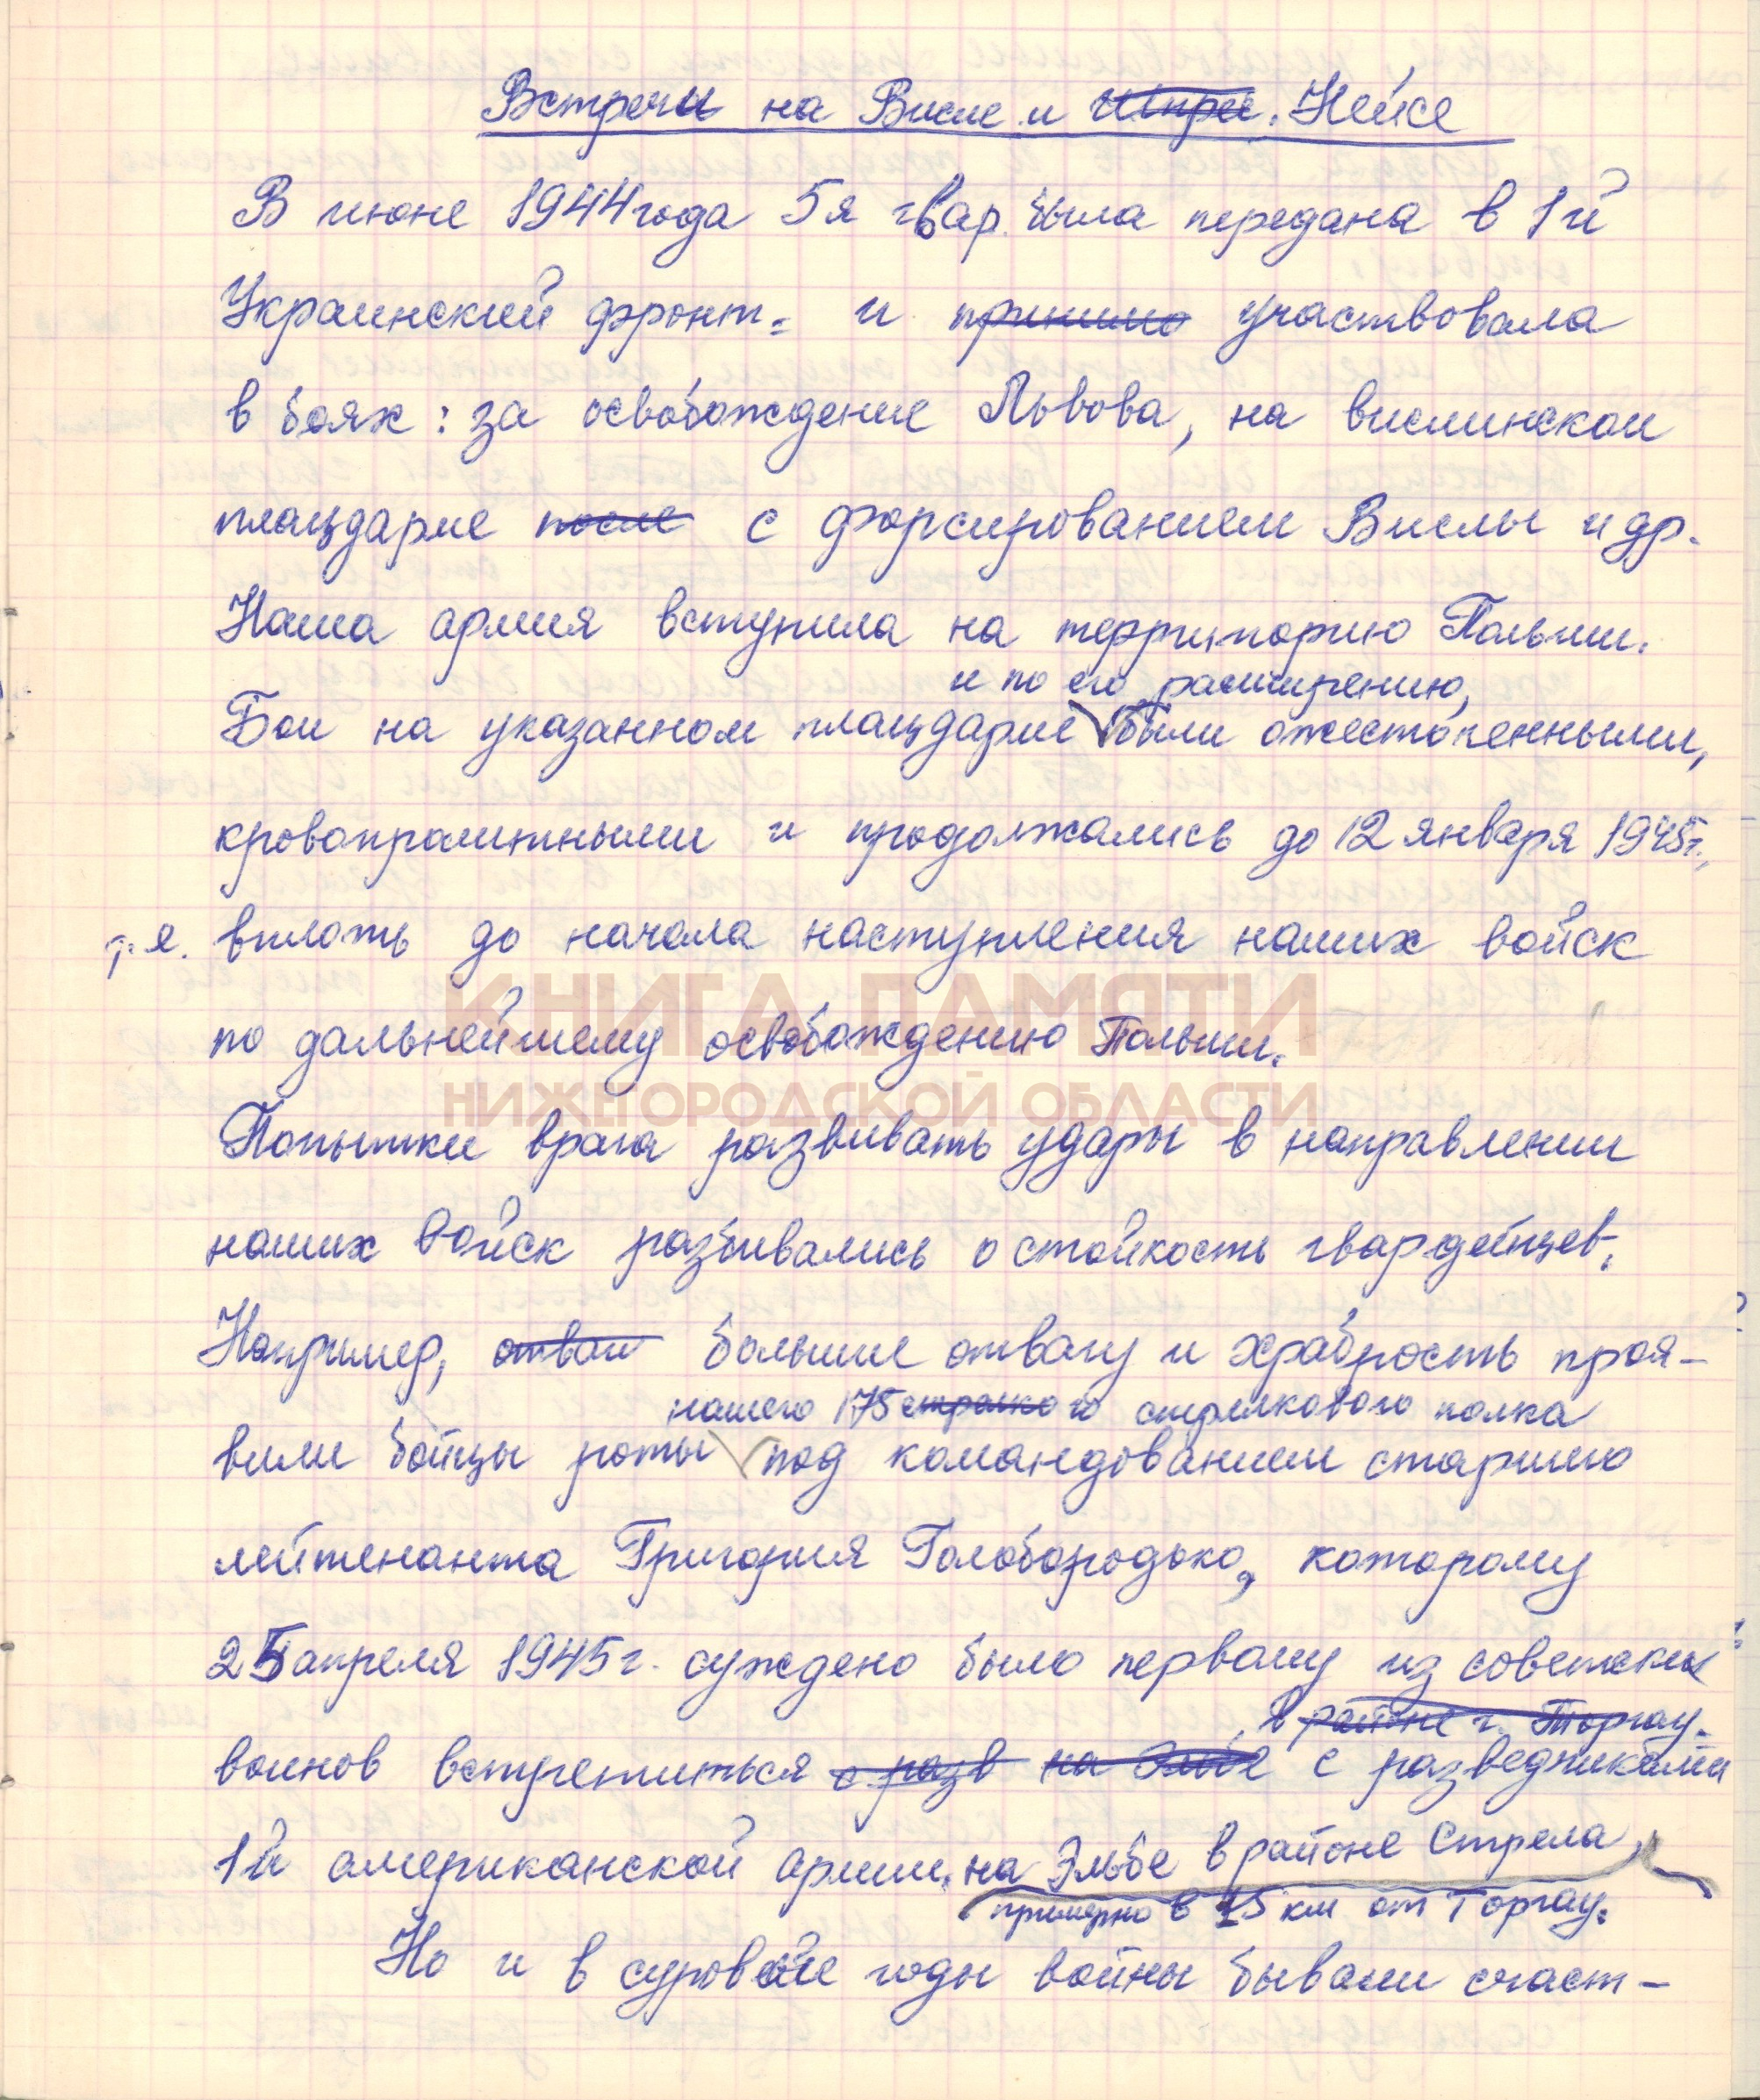 Встречи на Висле и Шпрее. Нейсе
В июне 1944 года 5я гвар. была передана в 1й
Украинский фронт. и принимо участвовала
в боях: за освобождение Львова, на вислинском
плацдарме после с форсированием Вислы и др.
Наша армия вступила на территорию Польши.
и по его расширению,
Бои на указанном плацдарме были ожесточенными,
кровопролитными и продолжались до 12 января 1945г.,
т.е. вплоть до начала наступления наших войск
по дальнейшему освобождению Польши.
КНИГА ПАМЯТИ
НИЖЕГОРОДСКОЙ ОБЛАСТИ
Попытки врага развивать удары в направлении
наших войск разбивались о стойкость гвардейцев.
Например, отваги большие отвагу и храбрость проя-
нашего 175 стрелкого стрелкового полка
вили бойцы роты под командованием старшего
лейтенанта Григория Голобородько, которому
25 апреля 1945г. суждено было первому из советских
, в районе г. Торгау.
воинов встретиться с разв на Эльбе с разведчиками
1й американской армии. на Эльбе в районе Стрела,
примерно в 25 км от Торгау.
Но и в суровые годы войны бывали счаст-